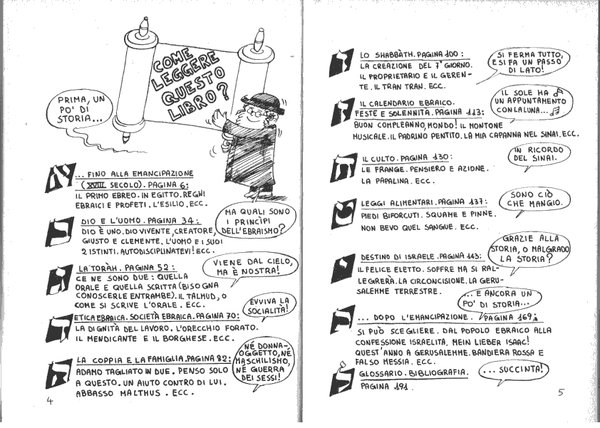 COME
LEGGERE
QUESTO
LIBRO?
PRIMA, UN
PO' DI
STORIA...
... FINO ALLA EMANCIPAZIONE
(XVIII SECOLO). PAGINA 6:
IL PRIMO EBREO. IN EGITTO. REGNI
EBRAICI E PROFETI. L'ESILIO, ECC.
MA QUALI SONO
I PRINCÌPI
DELL'EBRAISMO?
DIO E L'UOMO. PAGINA 34:
DIO È UNO. DIO VIVENTE, CREATORE,
GIUSTO E CLEMENTE. L'UOMO E I SUOI
2 ISTINTI. AUTODISCIPLINATEVI! ECC.
VIENE DAL CIELO,
MA È NOSTRA!
LA TORÀH. PAGINA 52:
CE NE SONO DUE: QUELLA
ORALE E QUELLA SCRITTA (BISOGNA
CONOSCERLE ENTRAMBE). IL TALMUD, O
COME SI SCRIVE L'ORALE. ECC.
EVVIVA LA
SOCIALITÀ!
ETICA EBRAICA. SOCIETÀ EBRAICA. PAGINA 70:
LA DIGNITÀ DEL LAVORO. L'ORECCHIO FORATO.
IL MENDICANTE E IL BORGHESE. ECC.
NÉ DONNA-
OGGETTO, NÉ
MASCHILISMO,
NÉ GUERRA
DEI SESSI!
LA COPPIA E LA FAMIGLIA. PAGINA 82:
ADAMO TAGLIATO IN DUE. PENSO SOLO
A QUESTO. UN AIUTO CONTRO DI LUI.
ABBASSO MALTHUS. ECC.
4
LO SHABBÀTH. PAGINA 100:
LA CREAZIONE DEL 7° GIORNO.
IL PROPRIETARIO E IL GEREN-
TE. IL TRAN TRAN. ECC.
SI FERMA TUTTO,
E SI FA UN PASSO
DI LATO!
IL CALENDARIO EBRAICO.
FESTE E SOLENNITÀ. PAGINA 113:
BUON COMPLEANNO, MONDO! IL MONTONE
MUSICALE. IL PADRINO PENTITO. LA MIA CAPANNA NEL SINAI. ECC.
IL SOLE HA
UN APPUNTAMENTO
CON LA LUNA...
IL CULTO. PAGINA 130:
LE FRANGE. PENSIERO E AZIONE.
LA PAPALINA. ECC.
IN RICORDO
DEL SINAI.
LEGGI ALIMENTARI. PAGINA 137:
PIEDI BIFORCUTI. SQUAME E PINNE.
NON BEVO QUEL SANGUE. ECC.
SONO CIÒ
CHE MANGIO.
GRAZIE ALLA
STORIA, O MALGRADO
LA STORIA?
DESTINO DI ISRAELE. PAGINA 145:
IL FELICE ELETTO. SOFFRE MA SI RAL-
LEGRERÀ. LA CIRCONCISIONE. LA GERU-
SALEMME TERRESTRE.
... E ANCORA UN
PO' DI STORIA...
... DOPO L'EMANCIPAZIONE. PAGINA 169:
SI PUÒ SCEGLIERE. DAL POPOLO EBRAICO ALLA
CONFESSIONE ISRAELITA. MEIN LIEBER ISAAC!
QUEST'ANNO A GERUSALEMME. BANDIERA ROSSA E
FALSO MESSIA. ECC.
... SUCCINTA!
GLOSSARIO. BIBLIOGRAFIA.
PAGINA 191
5